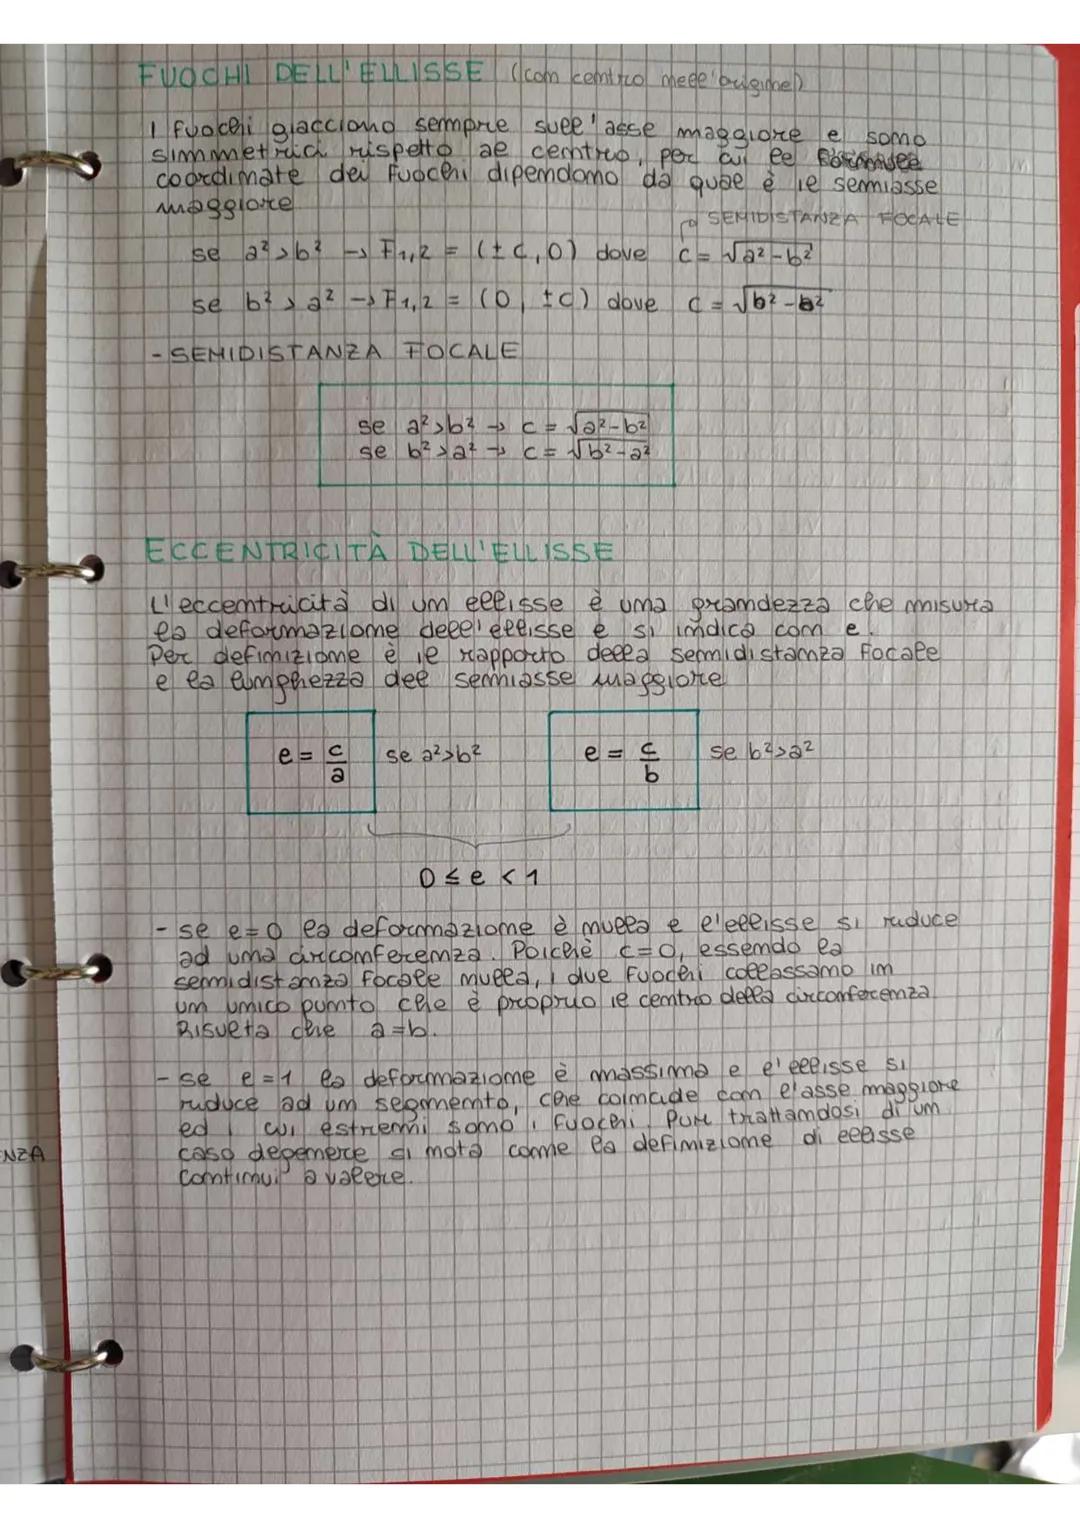 FUOCHI DELL'ELLISSE (con centro nell'origine)
I fuochi giacciono sempre sull'asse maggiore e sono
simmetrici rispetto al centro, per cui le
coordinate dei fuochi dipendono da qual è il semiasse
maggiore
SEMIDISTANZA FOCALE
se a²>b² → F₁,₂ = (±c,0) dove c = √a²-b²
se b²>a² → F₁,₂ = (0, ±c) dove c = √b²-a²
- SEMIDISTANZA FOCALE
se a²>b² → c = √a²-b²
se b²>a² → c = √b²-a²
ECCENTRICITÀ DELL'ELLISSE
L'eccentricità di un ellisse è una grandezza che misura
la deformazione dell'ellisse e si indica con e.
Per definizione è il rapporto della semidistanza focale
e la lunghezza del semiasse maggiore
e = c/a se a²>b² e = c/b se b²>a²
0 ≤ e < 1
- se e=0 la deformazione è nulla e l'ellisse si riduce
ad una circonferenza. Poichè c=0, essendo la
semidistanza focale nulla, i due fuochi collassano in
un unico punto che è proprio il centro della circonferenza.
Risulta che a=b.
- se e=1 la deformazione è massima e l'ellisse si
riduce ad un segmento, che coincide con l'asse maggiore
ed i cui estremi sono i fuochi. Pur trattandosi di un
caso degenere si nota come la definizione di ellisse
continui a valere.
NZA